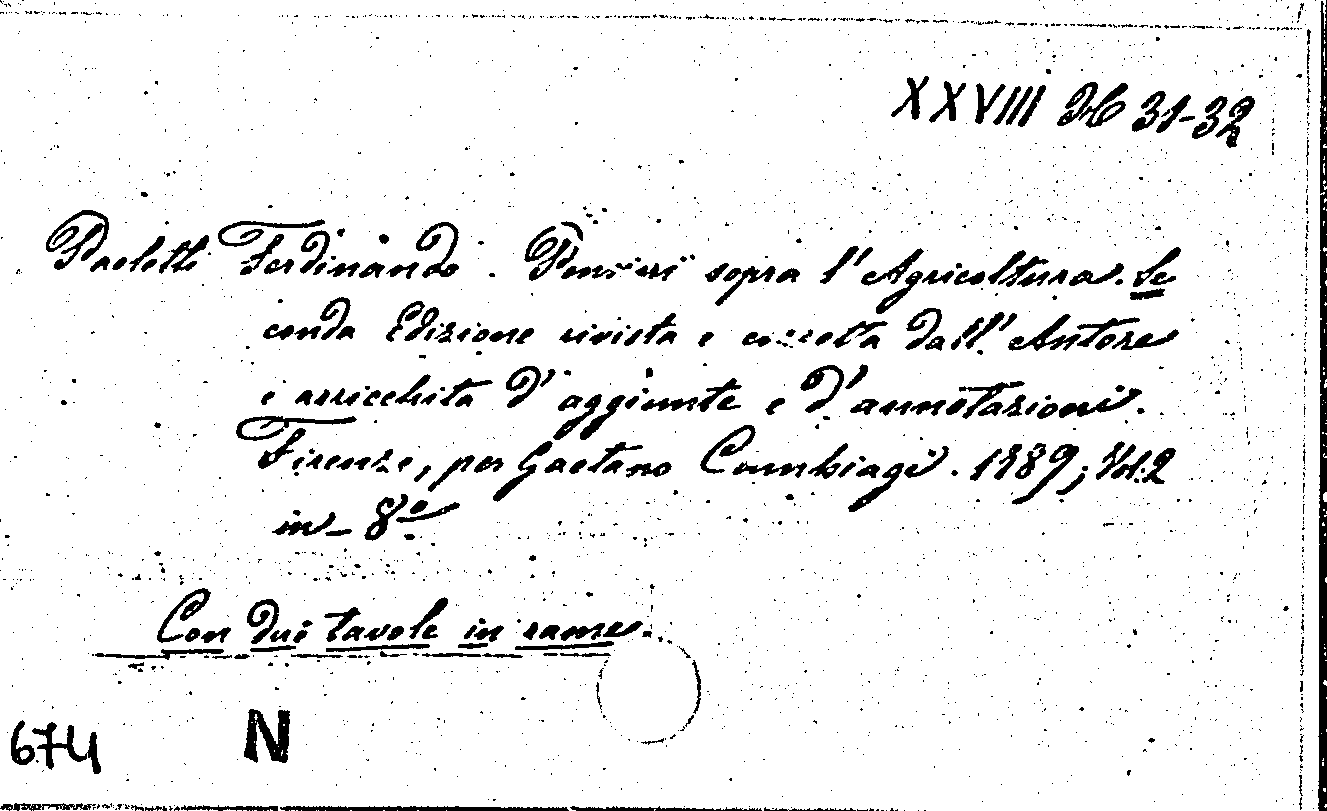 XXVIII H 31-32
Paoletti Ferdinando. Pensieri sopra l'Agricoltura. Se
conda Edizione rivista e corretta dall'Autore
e arricchita d'aggiunte e d'annotazioni.
Firenze, per Gaetano Cambiagi. 1789; Vol. 2
in-8º
Con due tavole in rame.
N
674